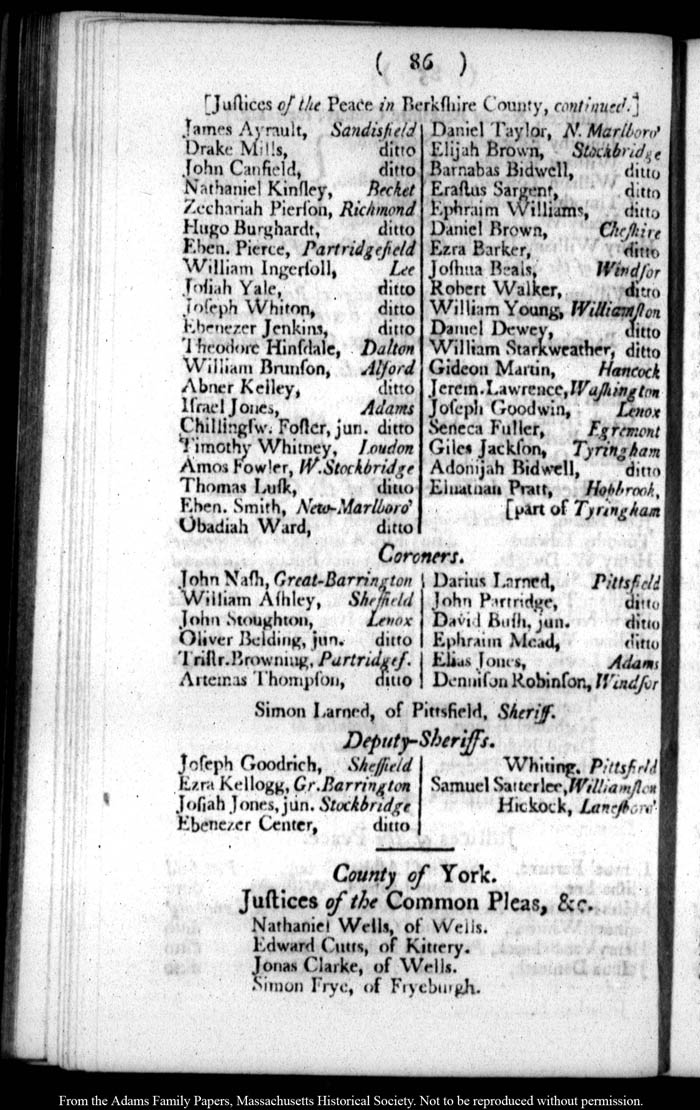 ( 86 )
[Juſtices of the Peace in Berkſhire County, continued.]
James Ayrault, Sandisfield
Drake Mills, ditto
John Canfield, ditto
Nathaniel Kinſley, Becket
Zechariah Pierſon, Richmond
Hugo Burghardt, ditto
Eben. Pierce, Partridgefield
William Ingerſoll, Lee
Joſiah Yale, ditto
Joſeph Whiton, ditto
Ebenezer Jenkins, ditto
Theodore Hinſdale, Dalton
William Brunſon, Alford
Abner Kelley, ditto
Iſrael Jones, Adams
Chillingſw. Foſter, jun. ditto
Timothy Whitney, Loudon
Amos Fowler, W. Stockbridge
Thomas Luſk, ditto
Eben. Smith, New-Marlboro'
Obadiah Ward, ditto
Daniel Taylor, N. Marlboro'
Elijah Brown, Stockbridge
Barnabas Bidwell, ditto
Eraſtus Sargent, ditto
Ephraim Williams, ditto
Daniel Brown, Cheſhire
Ezra Barker, ditto
Joſhua Beals, Windſor
Robert Walker, ditto
William Young, Williamſton
Daniel Dewey, ditto
William Starkweather, ditto
Gideon Martin, Hancock
Jerem. Lawrence, Waſhington
Joſeph Goodwin, Lenox
Seneca Fuller, Egremont
Giles Jackſon, Tyringham
Adonijah Bidwell, ditto
Elnathan Pratt, Hobbrook,
[part of Tyringham
Coroners.
John Naſh, Great-Barrington
William Aſhley, Sheffield
John Stoughton, Lenox
Oliver Belding, jun. ditto
Triſtr. Browning, Partridgef.
Artemas Thompſon, ditto
Darius Larned, Pittsfield
John Partridge, ditto
David Buſh, jun. ditto
Ephraim Mead, ditto
Elias Jones, Adams
Denniſon Robinſon, Windſor
Simon Larned, of Pittsfield, Sheriff.
Deputy-Sheriffs.
Joſeph Goodrich, Sheffield
Ezra Kellogg, Gr. Barrington
Joſiah Jones, jun. Stockbridge
Ebenezer Center, ditto
Whiting, Pittsfield
Samuel Satterlee, Williamſton
Hickock, Laneſboro'
County of York.
Juſtices of the Common Pleas, &c.
Nathaniel Wells, of Wells.
Edward Cutts, of Kittery.
Jonas Clarke, of Wells.
Simon Frye, of Fryeburgh.
From the Adams Family Papers, Massachusetts Historical Society. Not to be reproduced without permission.